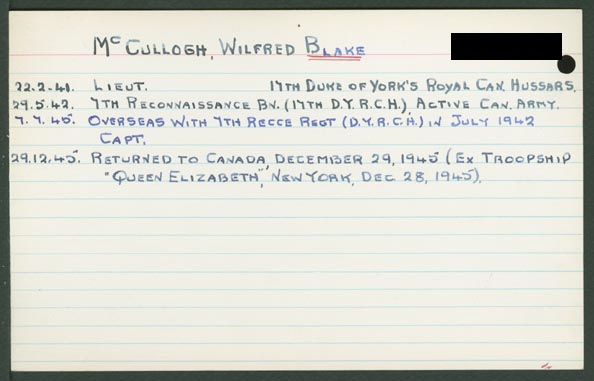 McCULLOGH, WILFRED BLAKE
22.2.41. LIEUT. 17TH DUKE OF YORK'S ROYAL CAN. HUSSARS.
29.5.42. 7TH RECONNAISSANCE BN. (17TH D.Y.R.C.H.), ACTIVE CAN. ARMY.
7.7.45. OVERSEAS WITH 7TH RECCE REGT (D.Y.R.C.H.) IN JULY 1942
CAPT.
29.12.45. RETURNED TO CANADA, DECEMBER 29, 1945 (EX TROOPSHIP
"QUEEN ELIZABETH", NEW YORK, DEC 28, 1945).